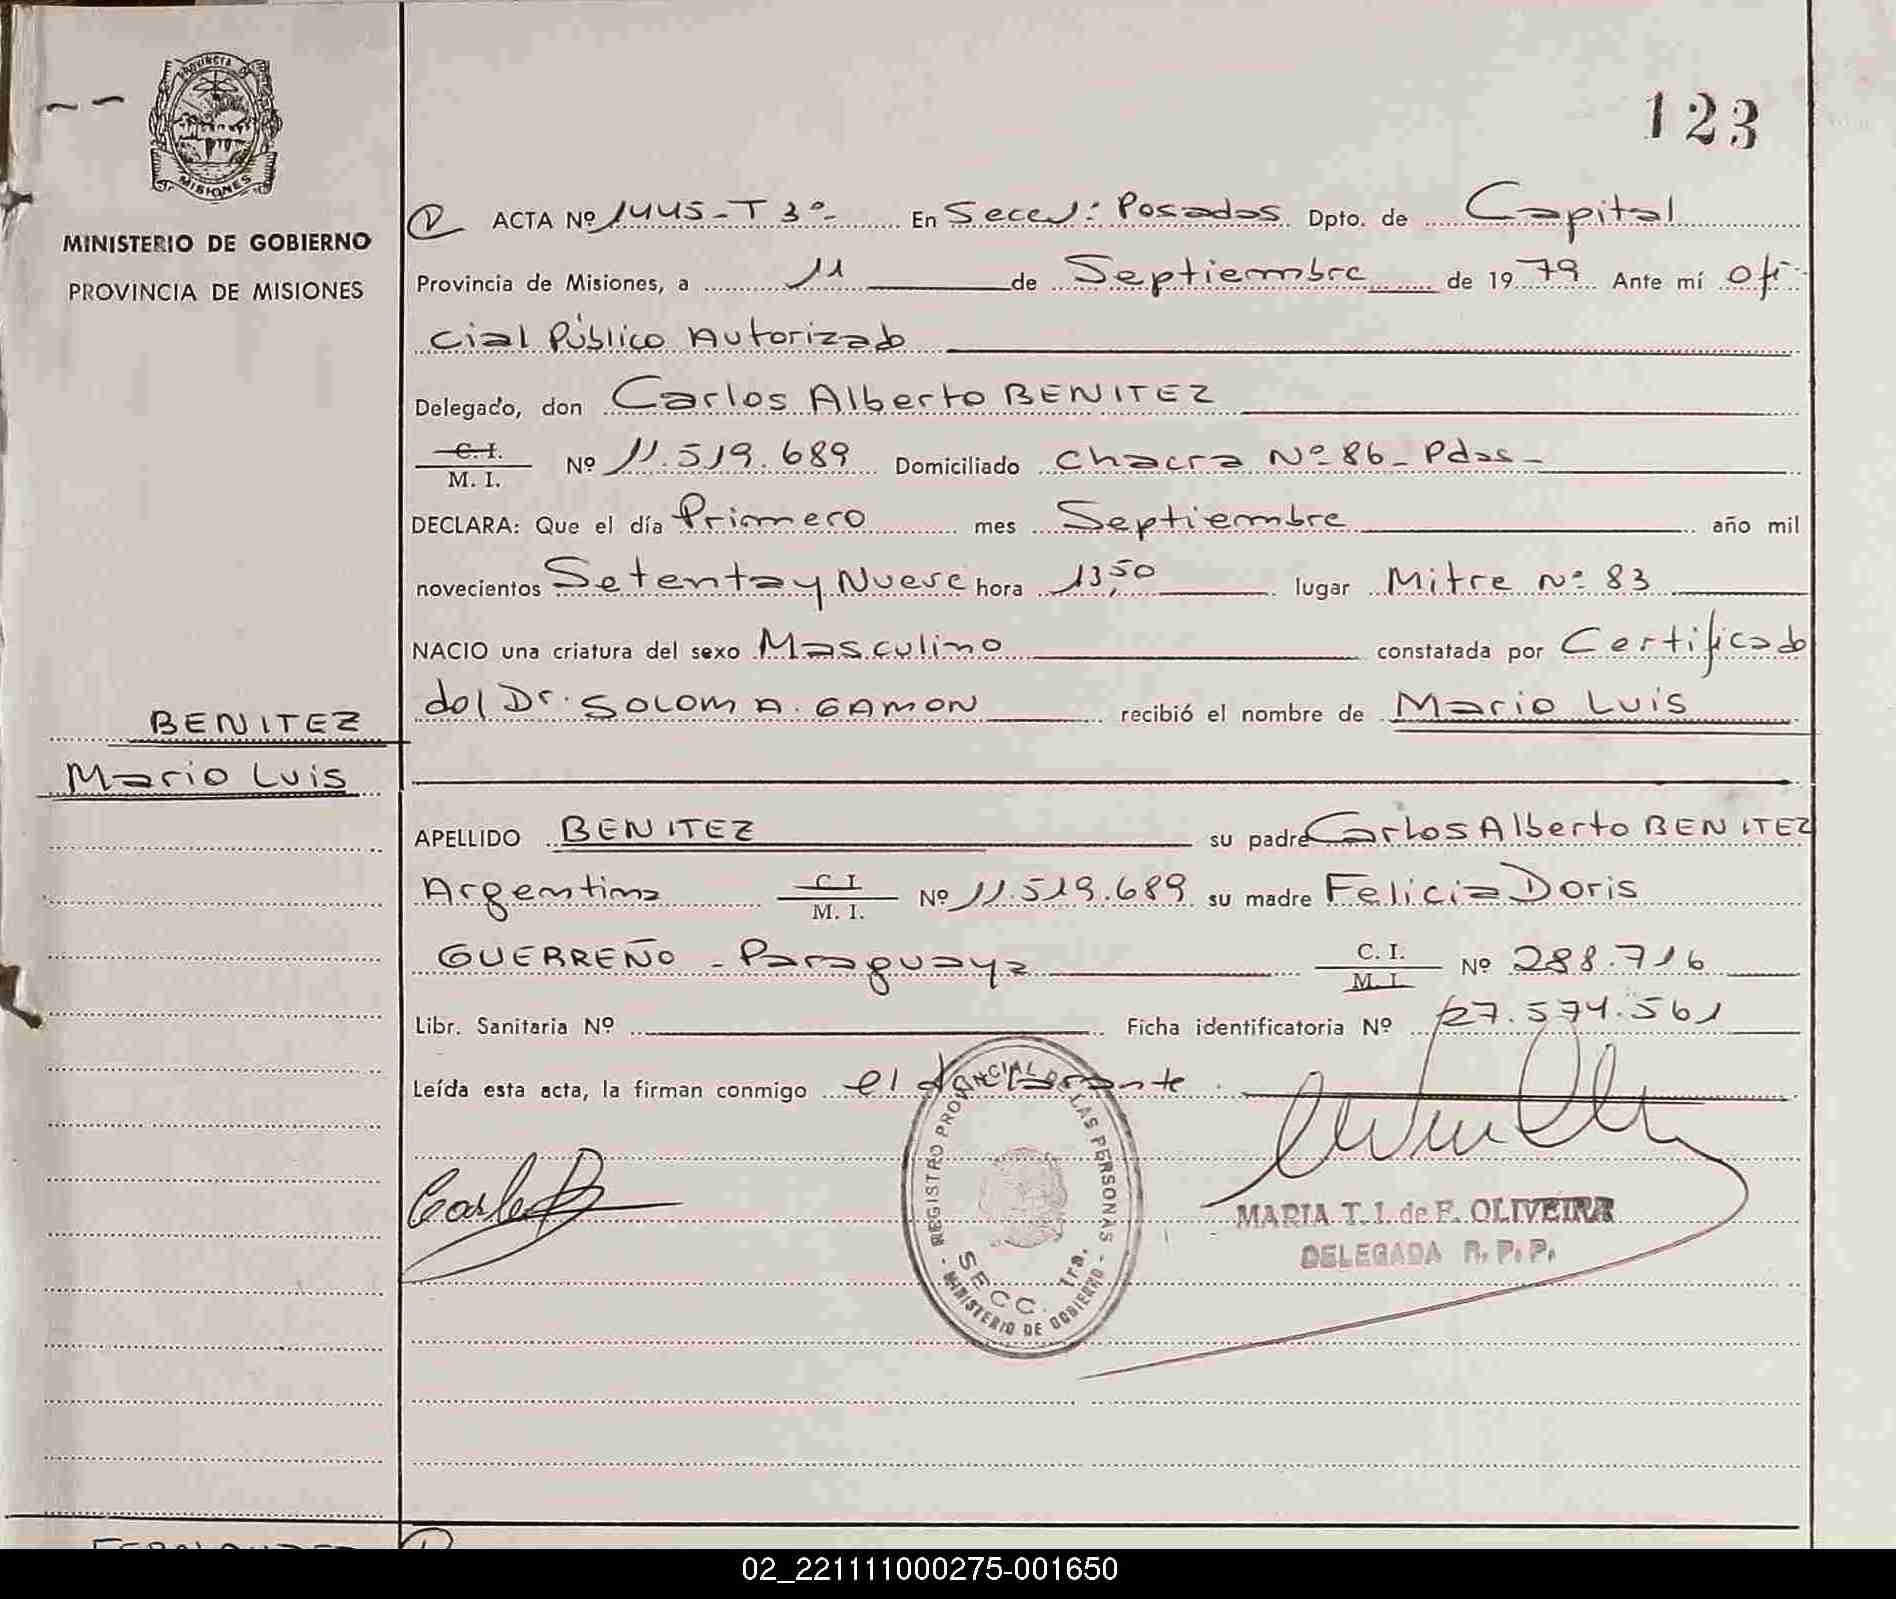 123
PROVINCIA DE
MISIONES
MINISTERIO DE GOBIERNO
PROVINCIA DE MISIONES
ACTA Nº 1445-T 3º- En Secc: Posadas Dpto. de Capital
Provincia de Misiones, a 11 de Septiembre de 1979 Ante mí ofi-
cial Público Autorizado
Delegado, don Carlos Alberto BENITEZ
C. I.
M. I. Nº 11.519.689 Domiciliado Chacra Nº 86- Pdas-
DECLARA: Que el día Primero mes Septiembre año mil
novecientos Setenta y Nueve hora 13,50 lugar Mitre Nº 83
NACIO una criatura del sexo Masculino constatada por Certificado
del Dr. SOLOM A. GAMON recibió el nombre de Mario Luis
BENITEZ
Mario Luis
APELLIDO BENITEZ su padre Carlos Alberto BENITEZ
Argentina C. I.
M. I. Nº 11.519.689 su madre Felicia Doris
GUERREÑO - Paraguaya C. I.
M. I. Nº 288.716
Libr. Sanitaria Nº Ficha identificatoria Nº 27.574.561
Leída esta acta, la firman conmigo el declarante.
- REGISTRO PROVINCIAL DE LAS PERSONAS -
SECC. 1ra.
MINISTERIO DE GOBIERNO
MARIA T. I. de F. OLIVEIRA
DELEGADA R. P. P.
02_221111000275-001650